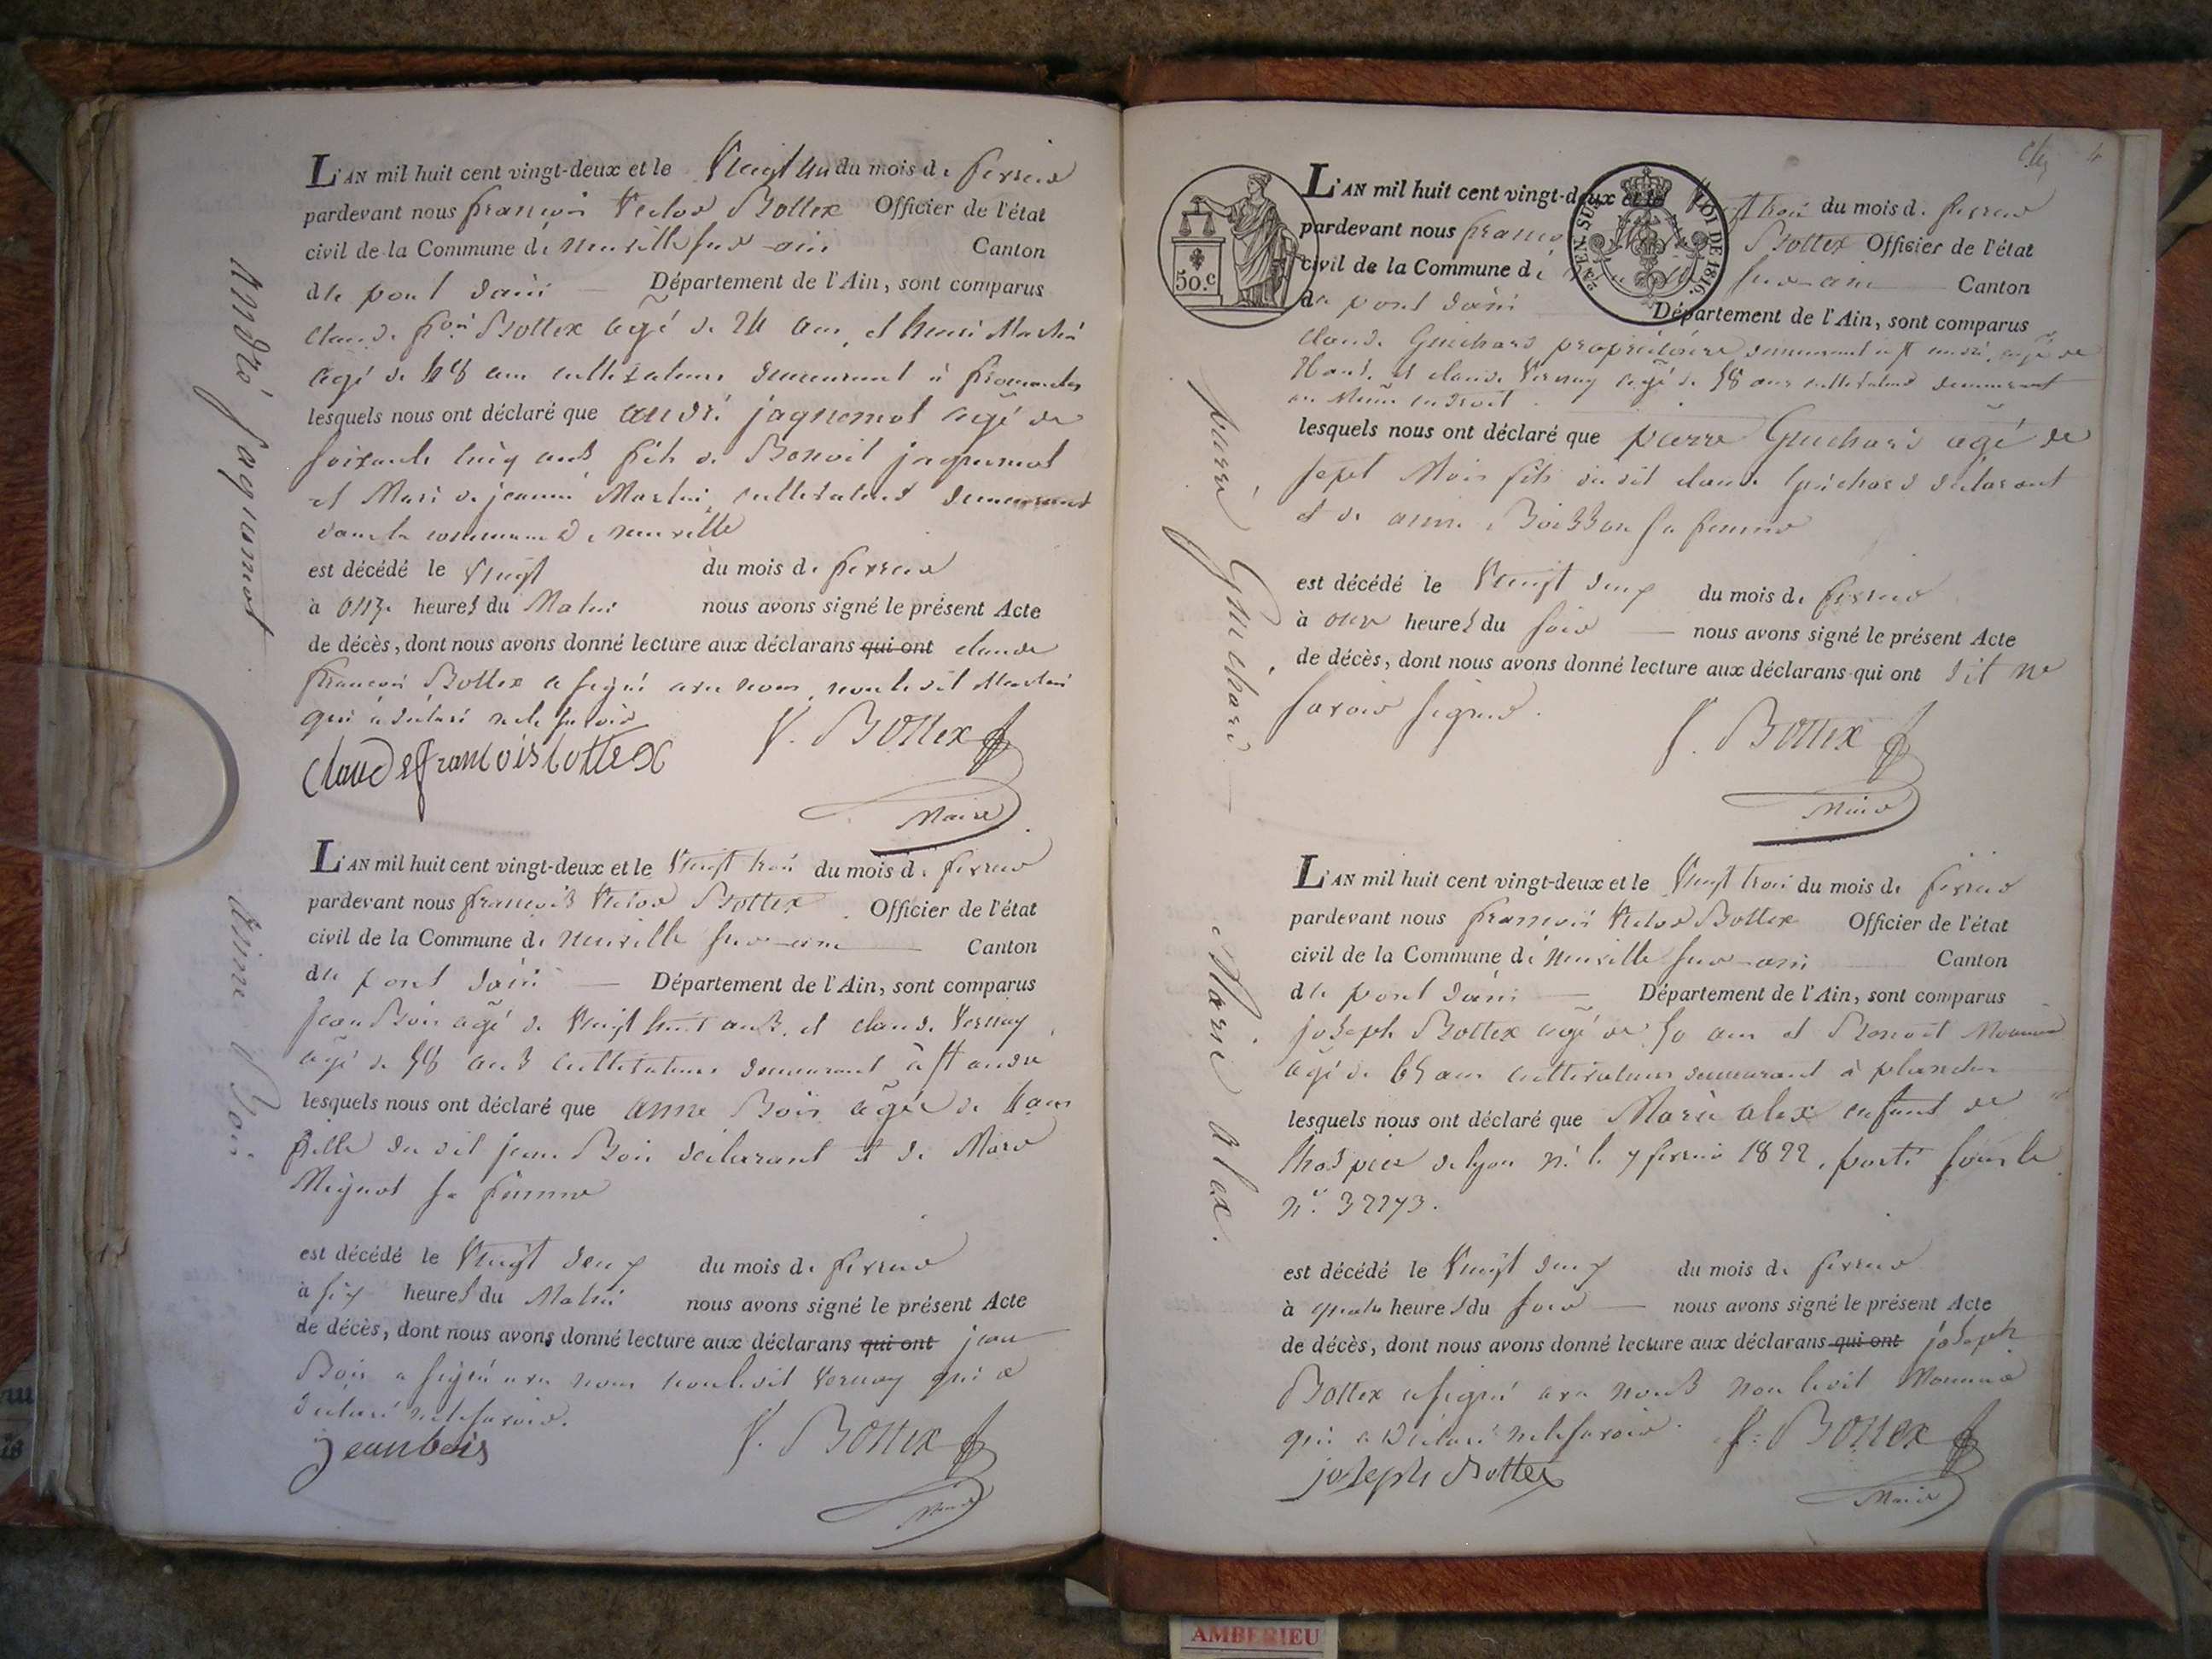 L'AN mil huit cent vingt-deux et le Vingt un du mois de fevrier
pardevant nous françois Victor Bottex Officier de l'état
civil de la Commune de neuville sur ain Canton
de pont dain Département de l'Ain, sont comparus
claude fois Bottex agé de 24 ans, et henri Martin
agé de 48 ans cultivateurs demeurant à fromentes
lesquels nous ont déclaré que andré jagnemot agé de
soixante cinq ans fils de Benoit jagnemot
et Mari de jeanne Martin, cultivateur demeurant
dans la commune de neuville
est décédé le Vingt du mois de fevrier
à onze heures du Matin nous avons signé le présent Acte
de décès, dont nous avons donné lecture aux déclarans qui ont claude
françois Bottex a signé avec nous, non le dit Martin
qui a déclaré ne le savoir
claude françois bottex V. Bottex
Maire
André jagnemot
L'AN mil huit cent vingt-deux et le Vingt trois du mois de fevrier
pardevant nous françois Victor Bottex Officier de l'état
civil de la Commune de neuville sur ain Canton
de pont dain Département de l'Ain, sont comparus
jean Bois agé de Vingt huit ans, et claude Vernay
agé de 58 ans cultivateurs demeurant à st andré
lesquels nous ont déclaré que anne Bois agée de 4 ans
fille du dit jean Bois déclarant et de Marie
Mignot sa femme
est décédé le Vingt deux du mois de fevrier
à six heures du Matin nous avons signé le présent Acte
de décès, dont nous avons donné lecture aux déclarans qui ont jean
Bois a signé avec nous non le dit Vernay qui a
déclaré ne le savoir.
jean bois V. Bottex
Maire
anne Bois
L'AN mil huit cent vingt-deux et le Vingt trois du mois de fevrier
pardevant nous franco Bottex Officier de l'état
civil de la Commune de sur ain Canton
de pont dain Département de l'Ain, sont comparus
50.c
LOI DE 1816.
claude Guichard propriétaire demeurant à st andré, agé de
et claude Vernay agé de 58 ans cultivateur demeurant
au même endroit
lesquels nous ont déclaré que pierre Guichard agé de
sept Mois fils du dit claude Guichard déclarant
et de anne Boisson sa femme
est décédé le Vingt deux du mois de fevrier
à onze heures du soir nous avons signé le présent Acte
de décès, dont nous avons donné lecture aux déclarans qui ont dit ne
savoir signer.
V. Bottex
Maire
pierre Guichard
L'AN mil huit cent vingt-deux et le Vingt trois du mois de fevrier
pardevant nous françois Victor Bottex Officier de l'état
civil de la Commune de neuville sur ain Canton
de pont dain Département de l'Ain, sont comparus
joseph Bottex agé de 50 ans et Benoit
agé de 65 ans cultivateurs demeurant à planches
lesquels nous ont déclaré que Marie alex enfant de
lhospice de lyon né le 7 fevrier 1822, porté sous le
n° 32273.
est décédé le Vingt deux du mois de fevrier
à quatre heures du soir nous avons signé le présent Acte
de décès, dont nous avons donné lecture aux déclarans qui ont joseph
Bottex a signé avec nous non le dit
qui a déclaré ne le savoir. V. Bottex
joseph Bottex Maire
Marie alex.
AMBERIEU